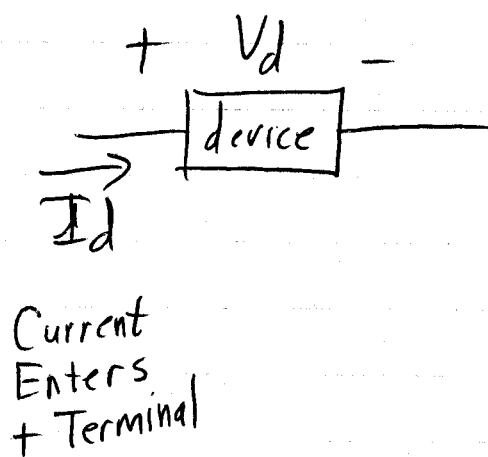 + Vd -
device
Id
Current
Enters
+ Terminal